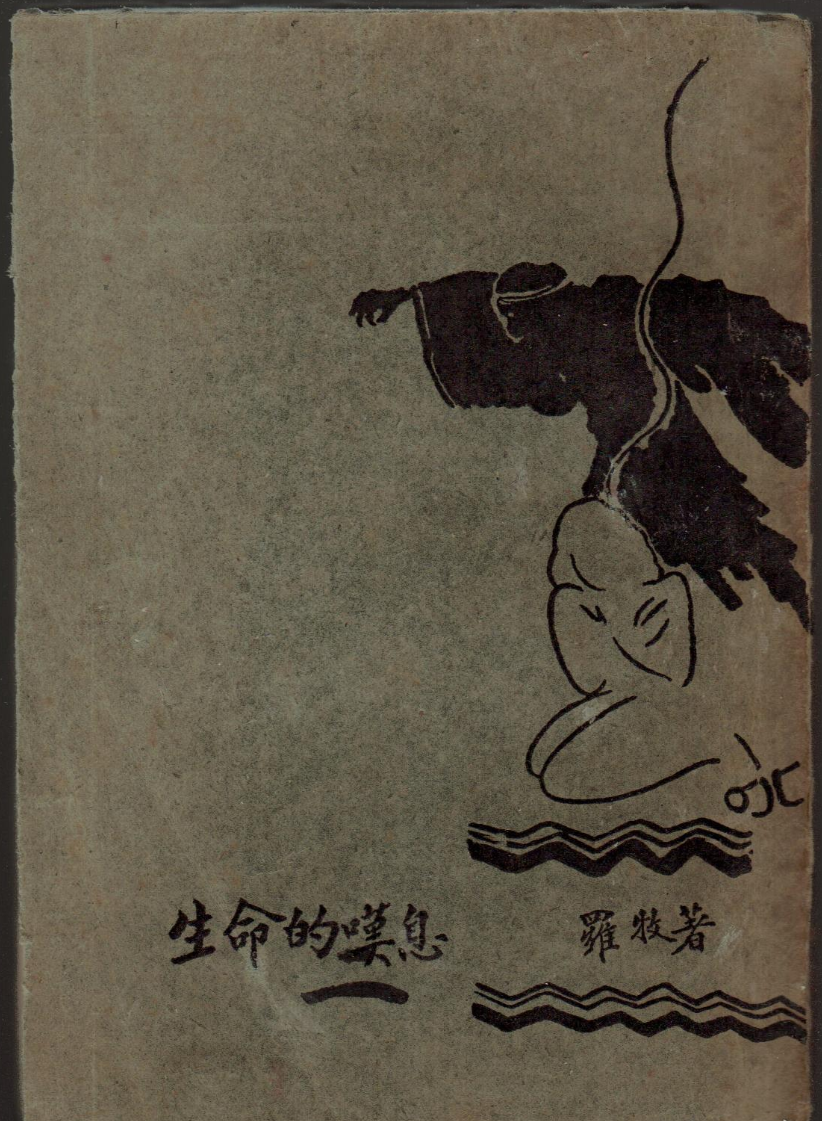 生命的嘆息
羅牧著